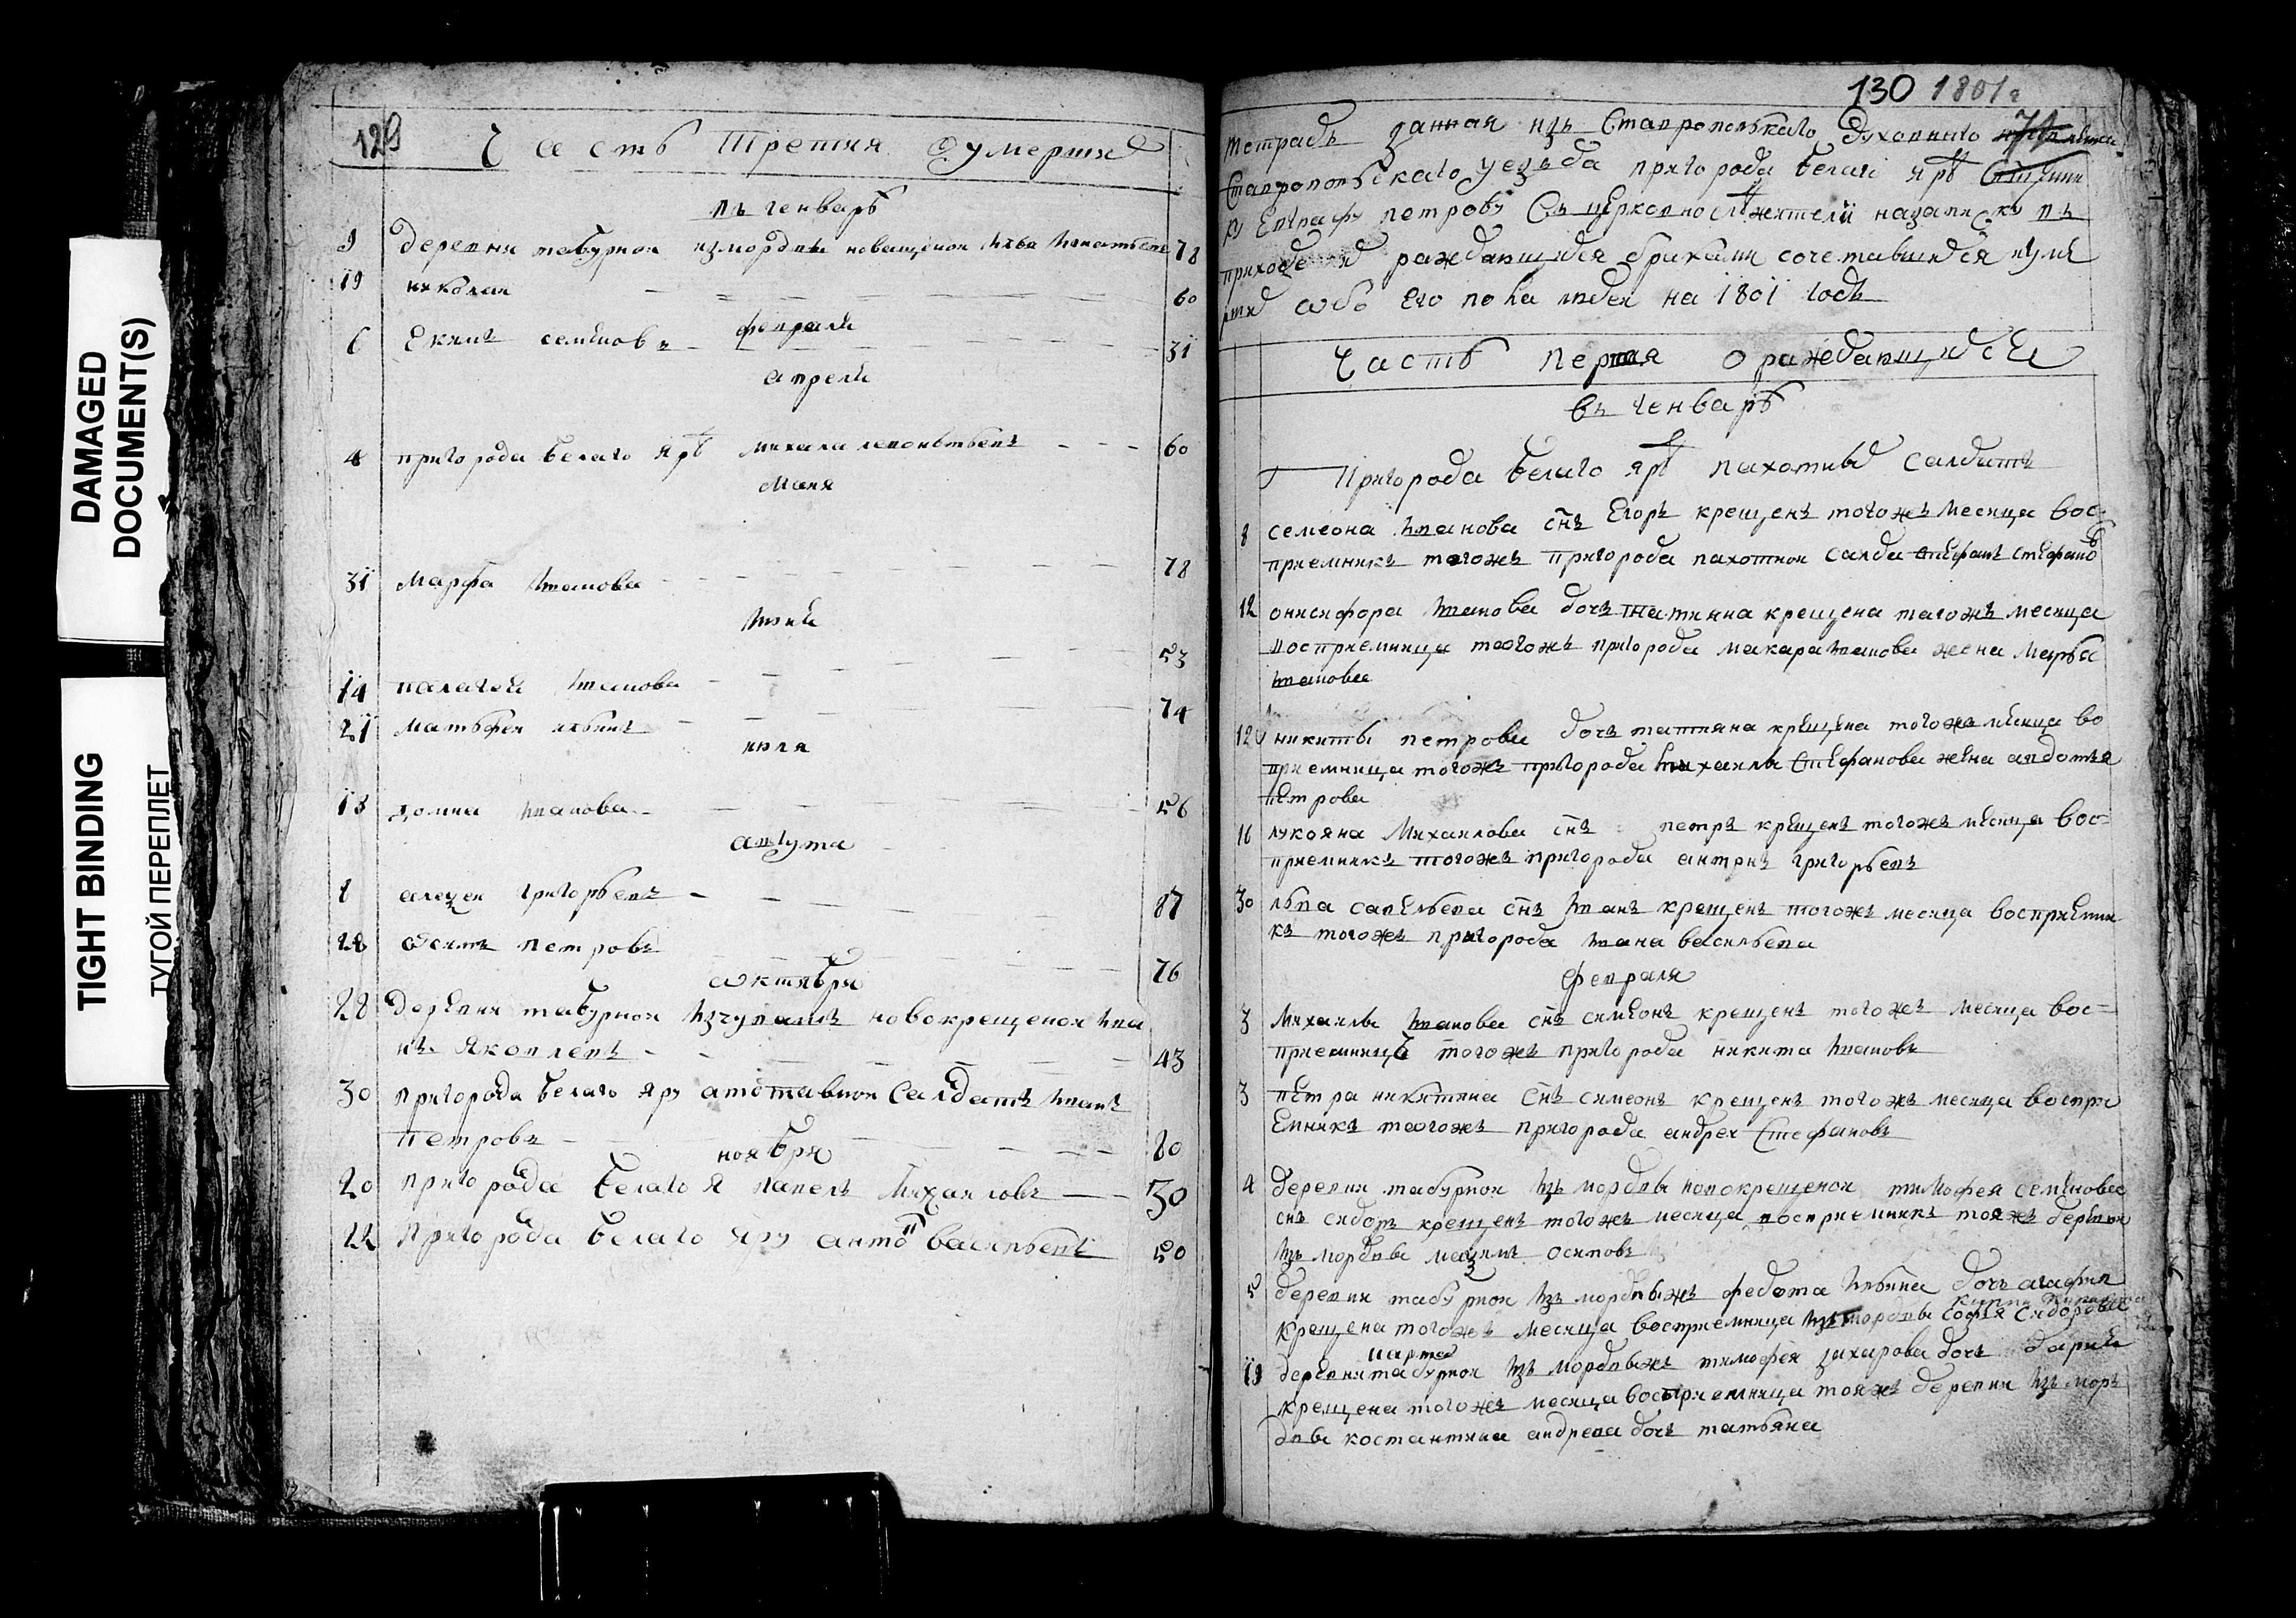 DAMAGED
DOCUMENT(S)
TIGHT BINDING
ТУГОЙ ПЕРЕПЛЕТ
129
Часть третия о умерших
въ генварѣ
9 деревни табурной из мордвы 78
19 николая 60
февраля
6 Екимъ семенов 31
апреля
4 пригорода белаго яру михаила леонтьевъ 60
маия
31 марфа иванова 78
июня
14 палагея иванова 53
21 матьфеи ильинъ 74
июля
13 домна иванова 56
августа
8 алеѯеи григорьевъ 87
28 осипъ петровъ 76
октября
28 деревни табурной изчувашъ новокрещеной ива
нъ яковлевъ 43
30 пригорода белаго яру отставной салдатъ иванъ
петровъ 80
ноября
20 пригорода белаго я павелъ михаиловъ 30
22 пригорода белаго яру анто васильевъ 50
130 1801 г
тетрадь данная изъ ставропольскаго духовнаго
ставропольскаго уезда пригорода белаго яру
ку Евграфу петрову съ церковнослужители на записку въ
приходе их раждающихся браками сочетавшихся и уме
рших 1801 годъ
Часть первая о раждающихся
въ генварѣ
Пригорода белаго яру пахотных салдатъ
8 семеона иванова снъ Егоръ крещенъ тогожъ месяца вос-
приемникъ тогожъ пригорода пахотнои салда стефанъ стефанов
12 онисифора иванова дочь татияна крещена тагожъ месяца
восприемница тогожъ пригорода макара иванова жена марфа
иванова
12 никиты петрова дочь татияна крещена тогожъ месяца во
приемница тогожъ пригорода михаила стефанова жена авдотья
петрова
16 лукояна михаилова снъ петръ крещенъ тогожъ месяца вос=
приемникъ тогожъ пригорода антонъ григорьевъ
30 льва савельева снъ иванъ крещенъ тогожъ месяца восприемни
къ тогожъ пригорода ивана васильева
февраля
3 михаилы иванова снъ симеонъ крещенъ тогожъ месяца вос=
приемницъ тогожъ пригорода никита ивановъ
3 петра никитина снъ симеонъ крещенъ тогожъ месяца воспри
емникъ тогожъ пригорода андреи стефановъ
4 деревни табурнои изъ мордвы новокрещенои тимофея семенова
снъ сидоръ крещенъ тогожъ месяца восприемникъ тояжъ деревни
изъ мордвы маѯимъ осиповъ
5 деревни табурнои изъ мордвыжъ федота ильина дочь агафия
крещена тогожъ месяца восприемница изъ мордвы софья сидорова
марта
19 деревни табурнои изъ мордвыжъ тимофея захарова дочь дарья
крещена тогожъ месяца восприемница тояжъ деревни изъ мор
двы костантина андреева дочь татьяна